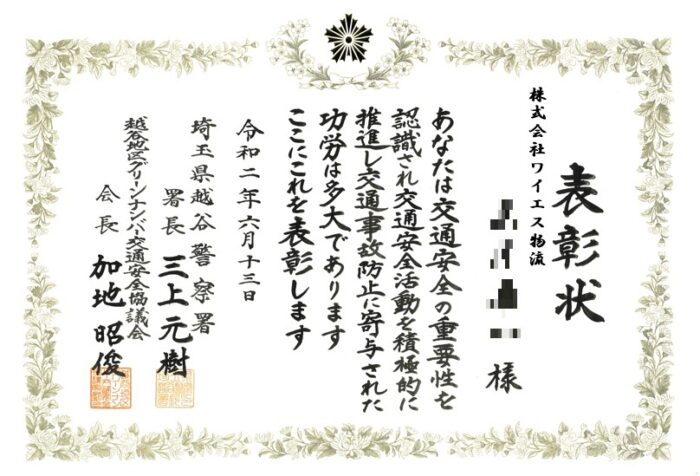 表彰状
株式会社ワイエス物流
様
あなたは交通安全の重要性を
認識され交通安全活動を積極的に
推進し交通事故防止に寄与された
功労は多大であります
ここにこれを表彰します
令和二年六月十三日
埼玉県越谷警察署
署長 三上元樹
越谷地区グリーンナンバー交通安全協議会
会長 加地昭俊